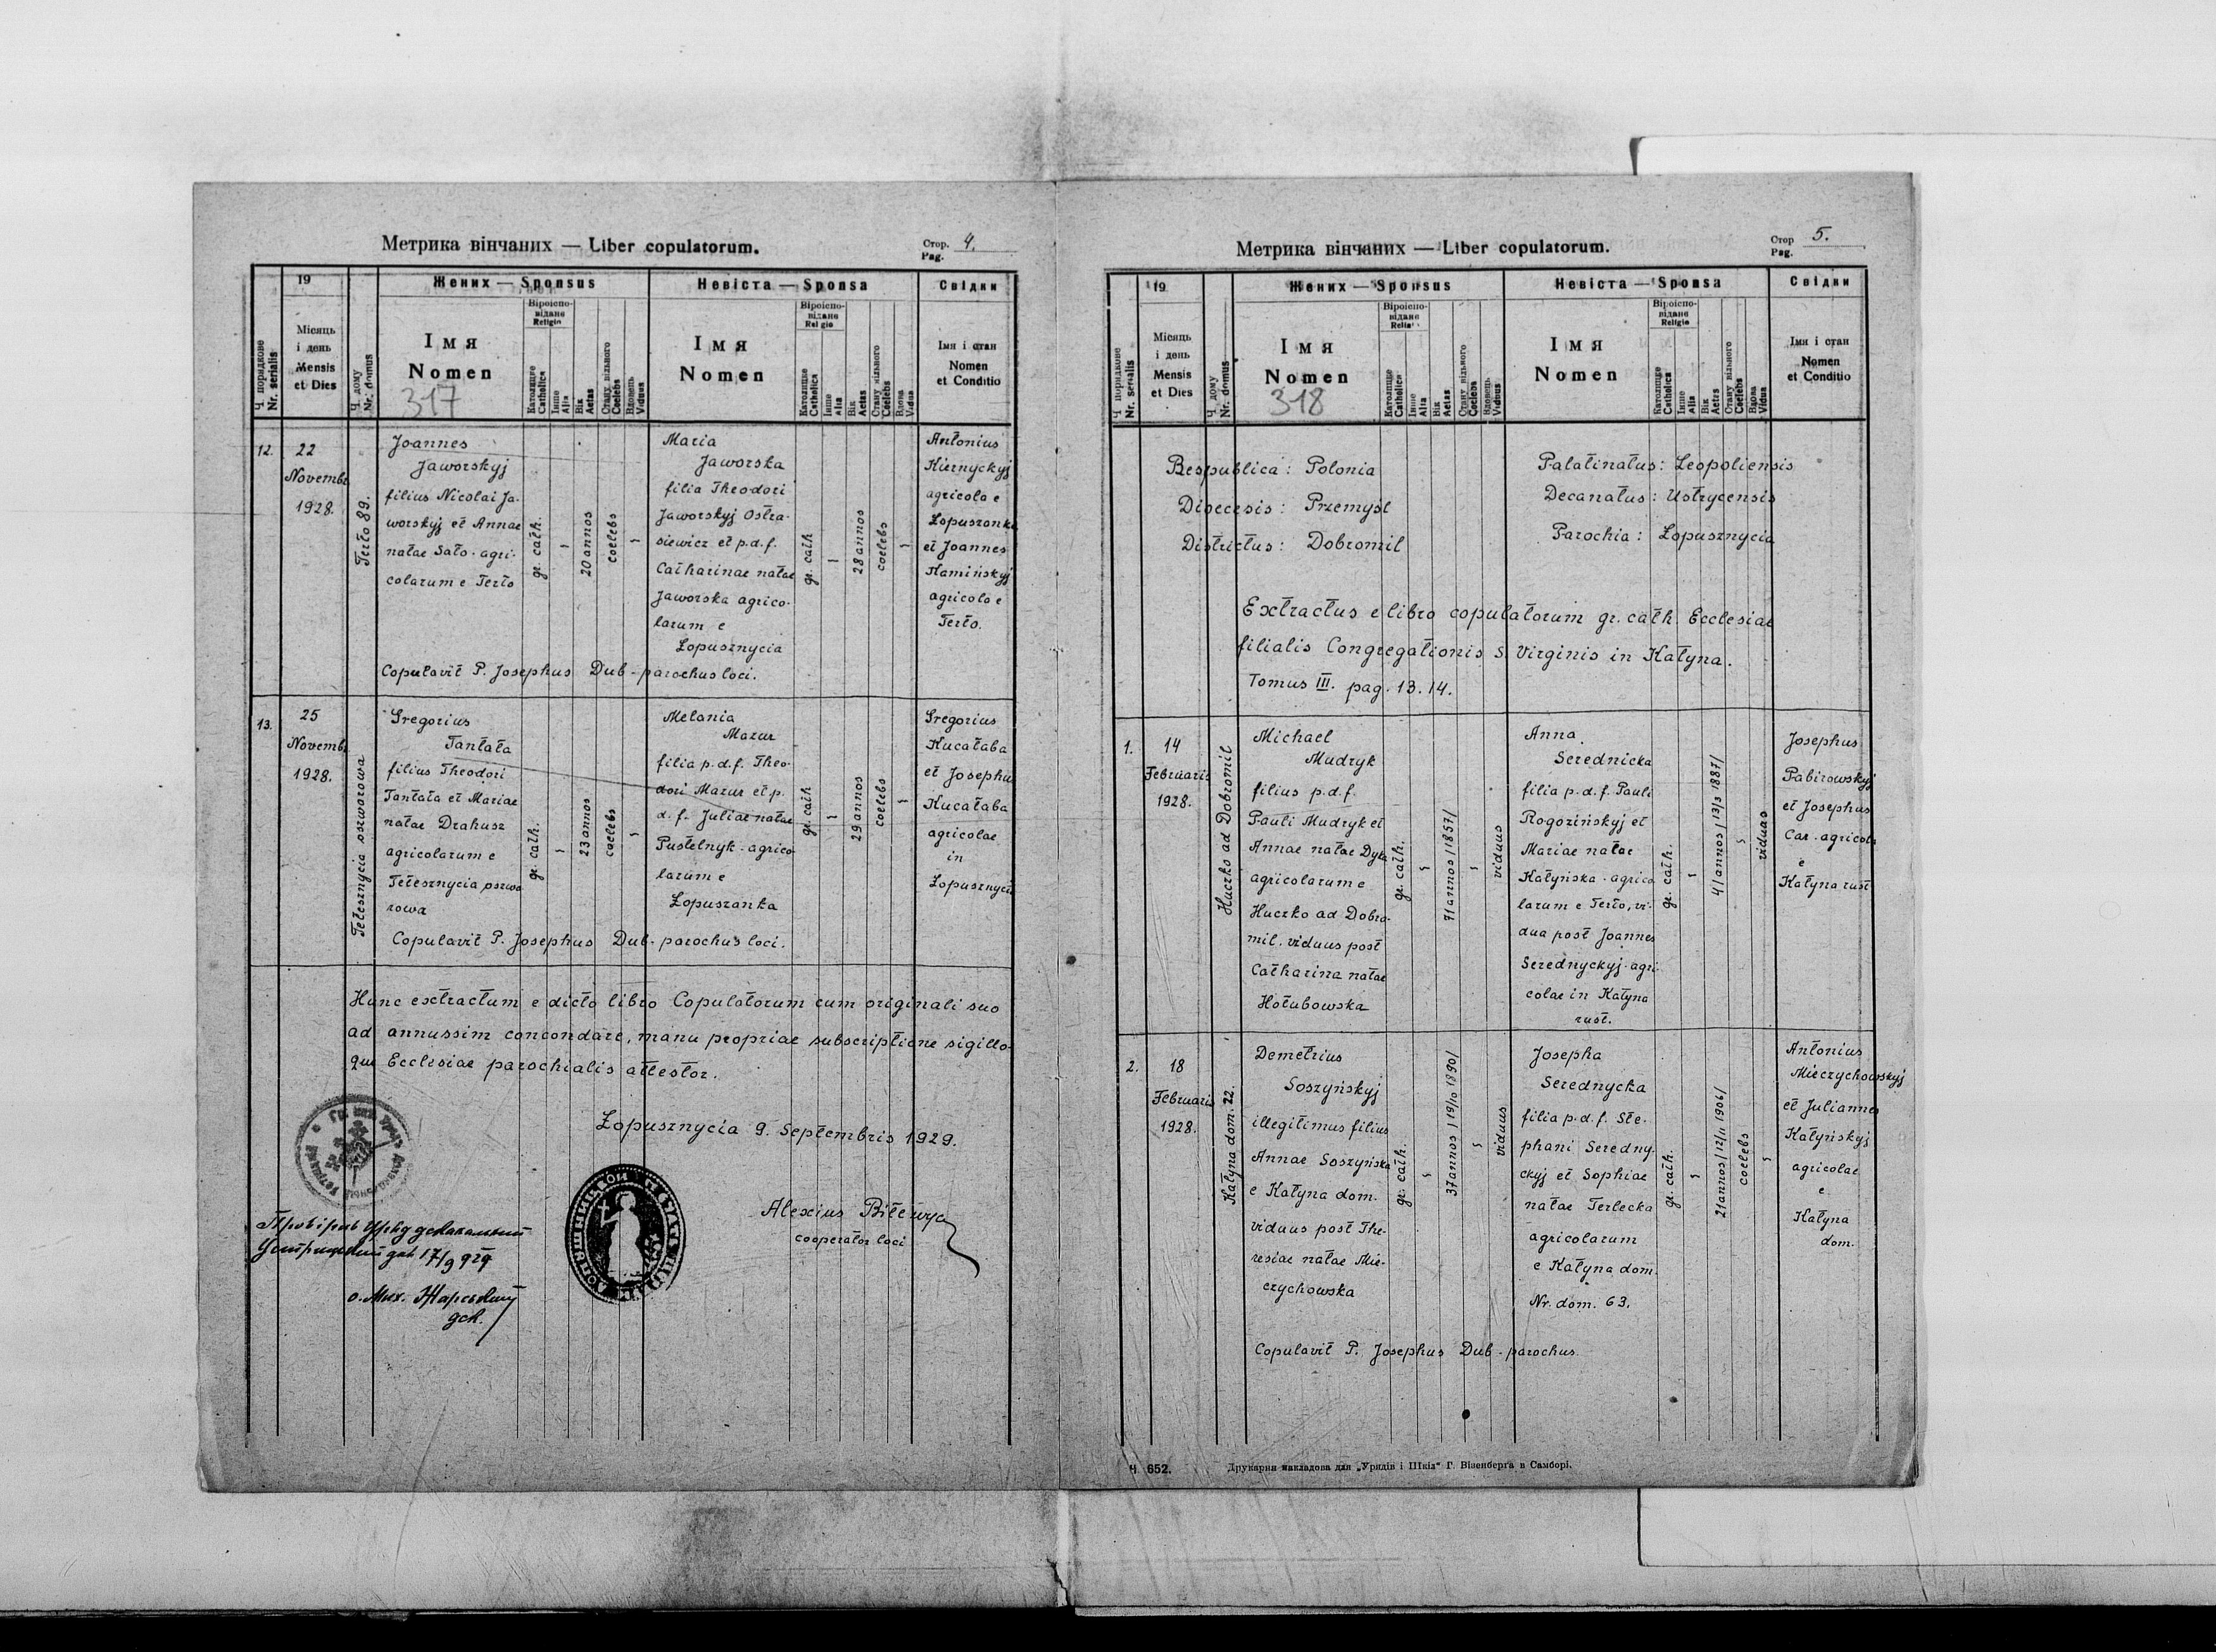 Метрика вінчаних — Liber copulatorum.
Стор. 4.
Pag.
Ч. порядкове
Nr. serialis
19
Місяць
і день
Mensis
et Dies
Ч. дому
Nr. domus
Жених — Sponsus
Імя
Nomen
317
Віроіспо-
відане
Religio
Католицке
Catholica
Інше
Alia
Вік
Aetas
Стану вільного
Coelebs
Вдовець
Viduus
Невіста — Sponsa
Імя
Nomen
Віроіспо-
відане
Religio
Католицке
Catholica
Інше
Alia
Вік
Aetas
Стану вільного
Coelebs
Вдова
Vidua
Свідки
Імя і стан
Nomen
et Conditio
12.
22
Novembr
1928.
Terło 89.
Joannes
Jaworskyj
filius Nicolai Ja-
worskyj et Annae
natae Sało - agri-
colarum e Terło
gr. cath.
20 annos
coelebs
Maria
Jaworska
filia Theodori
Jaworskyj Ostra-
siewicz et p.d.f.
Catharinae natae
Jaworska agrico-
larum e
Łopusznycia
gr. cath
28 annos
coelebs
Antonius
Kiernyckyj
agricola e
Łopuszanka
et Joannes
Kamińskyj
agricola e
Terło.
Copulavit P. Josephus Dub - parochus loci.
13.
25
Novemb.
1928.
Tełesznycia oszworowa
Gregorius
Tantała
filius Theodori
Tantała et Mariae
natae Drahusz
agricolarum e
Tełesznycia oszwo
rowa
gr. cath.
23 annos
coelebs
Melania
Mazur
filia p.d.f. Theo-
dori Mazur et p.
d. f. Juliae natae
Pustelnyk - agrico-
larum e
Łopuszanka
gr. cath
29 annos
coelebs
Gregorius
Kucałaba
et Josephus
Kucałaba
agricolae
in
Łopusznycia
Copulavit P. Josephus Dub - parochus loci.
Hunc extractum e dicto libro Copulatorum cum originali suo
ad annussim concondare, manu propriae subscriptione sigillo-
que Ecclesiae parochialis attestor.
Łopusznycia 9. Septembris 1929.
Alexius Biłewyc
cooperator loci
17/9 929
о. Мих.
дек.
Метрика вінчаних — Liber copulatorum.
Стор 5.
Pag.
Ч. порядкове
Nr. serialis
19
Місяць
і день
Mensis
et Dies
Ч. дому
Nr. domus
Жених — Sponsus
Імя
Nomen
318
Віроіспо-
відане
Католицке
Catholica
Інше
Alia
Вік
Aetas
Стану вільного
Coelebs
Вдовець
Viduus
Невіста — Sponsa
Імя
Nomen
Віроіспо-
відане
Religio
Католицке
Catholica
Інше
Alia
Вік
Aetas
Стану вільного
Coelebs
Вдова
Vidua
Свідки
Імя і стан
Nomen
et Conditio
Respublica: Polonia
Palatinatus: Leopoliensis
Dioecesis: Przemyśl
Decanatus: Ustrycensis
Districtus: Dobromil
Parochia: Łopusznycia
Extractus e libro copulatorum gr. cath. Ecclesiae
filialis Congregationis S. Virginis in Katyna.
Tomus III. pag. 13. 14.
1.
14
Februarii
1928.
Huczko ad Dobromil
Michael
Mudryk
filius p.d.f.
Pauli Mudryk et
Annae natae Dyka
agricolarum e
Huczko ad Dobro-
mil. viduus post
Catharina natae
Hołubowska
gr. cath.
71 annos /1857/
viduus
Anna
Serednicka
filia p.d.f. Pauli
Rogozińskyj et
Mariae natae
Katyńska - agrico
larum e Terło, vi-
dua post Joannes
Serednyckyj - agri-
colae in Katyna
rust.
gr. cath.
41 annos /13/3 1887/
viduas
Josephus
Pabirowskyj
et Josephus
Car - agricola
e
Katyna rust
2.
18
Februarii
1928.
Katyna dom. 22.
Demetrius
Soszyńskyj
illegitimus filius
Annae Soszyńska
e Katyna dom.
viduus post The-
resiae natae Mie-
czychowska
gr. cath.
37 annos /19/10 1890/
viduus
Josepha
Serednycka
filia p.d.f. Ste-
phani Seredny-
ckyj et Sophiae
natae Terlecka
agricolarum
e Katyna dom.
Nr. dom. 63.
gr. cath.
21 annos /12/11 1906/
coelebs
Antonius
Mieczychowskyj
et Julianna
Katyńskyj
agricolae
e
Katyna
dom.
Copulavit P. Josephus Dub - parochus.
Ч. 652.
Друкарня накладова для „Урядів і Шкіл“ Г. Візенберґа в Самборі.